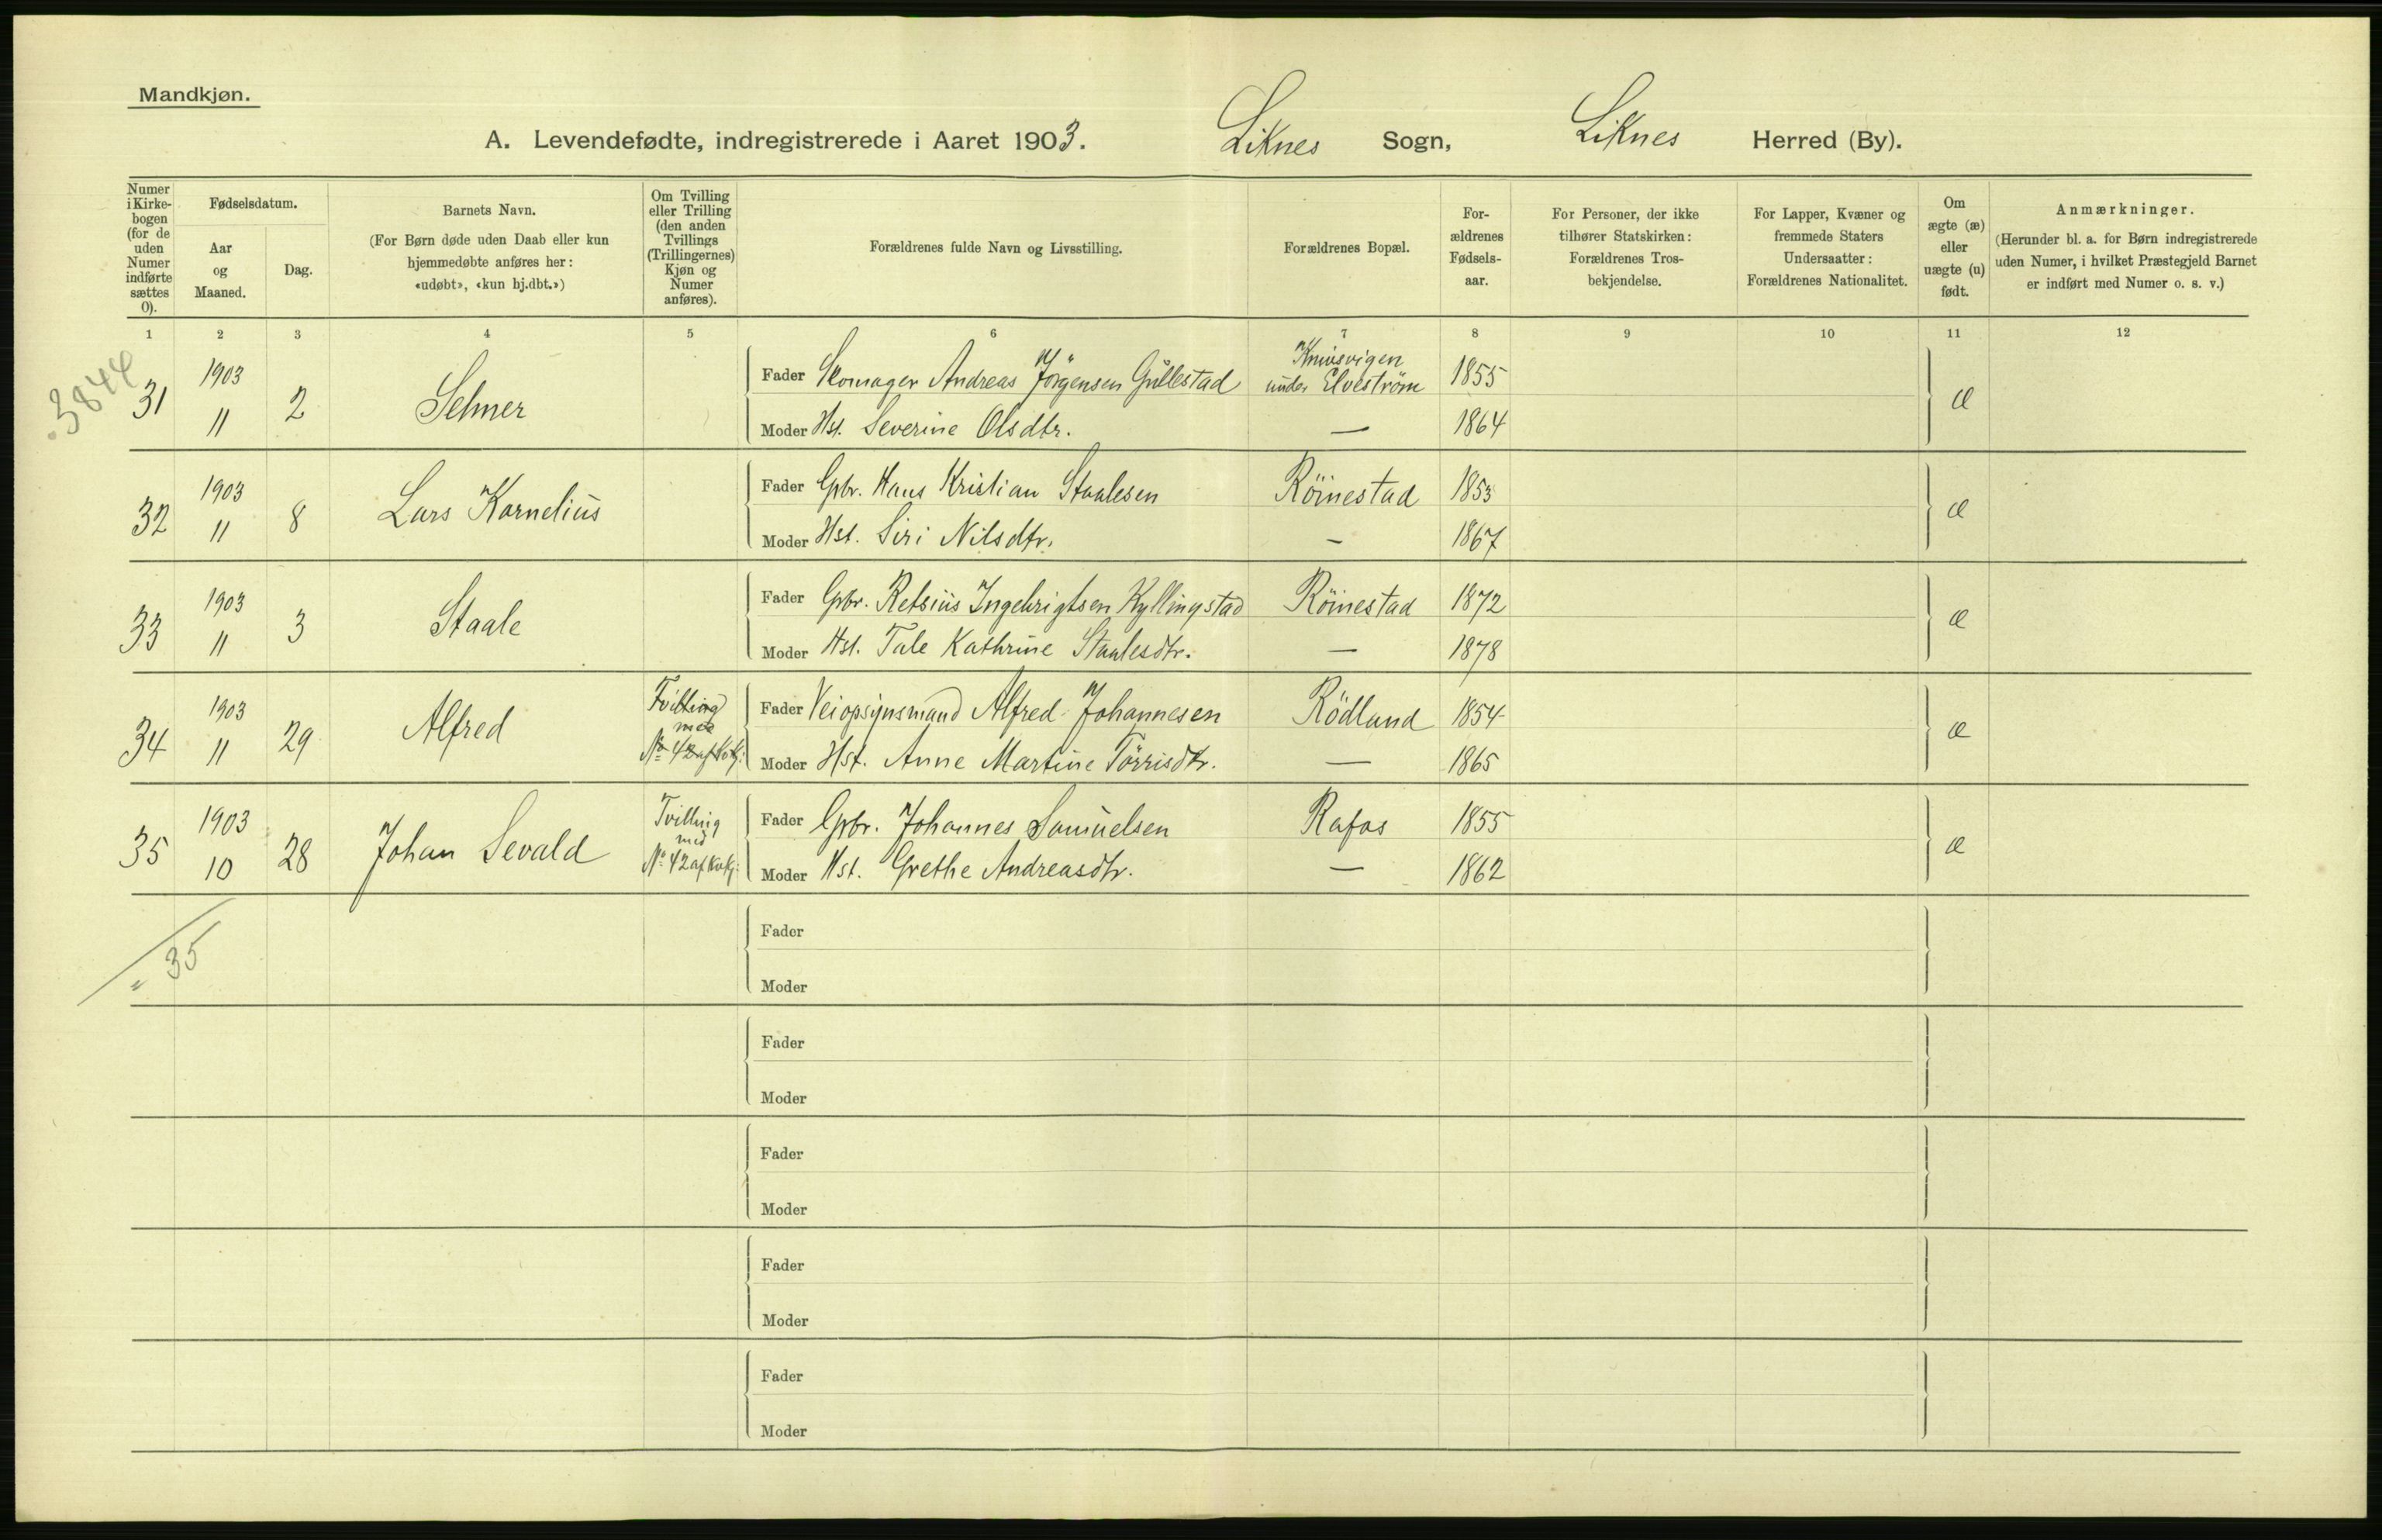 Mandkjøn.
A. Levendefødte, indregistrerede i Aaret 1903. Liknes Sogn, Liknes Herred (By).
Numer i Kirke-bogen (for de uden Numer indførte sættes 0).
Fødselsdatum.
Aar og Maaned.
Dag.
Barnets Navn.
(For Børn døde uden Daab eller kun hjemmedøbte anføres her: «udøbt», «kun hj.dbt.»)
Om Tvilling eller Trilling (den anden Tvillings (Trillingernes) Kjøn og Numer anføres).
Forældrenes fulde Navn og Livsstilling.
Forældrenes Bopæl.
For-ældrenes Fødsels-aar.
For Personer, der ikke tilhører Statskirken: Forældrenes Tros-bekjendelse.
For Lapper, Kvæner og fremmede Staters Undersaatter: Forældrenes Nationalitet.
Om ægte (æ) eller uægte (u) født.
Anmærkninger.
(Herunder bl. a. for Børn indregistrerede uden Numer, i hvilket Præstegjeld Barnet er indført med Numer o. s. v.)
1 2 3 4 5 6 7 8 9 10 11 12
3844
31 1903 11 2 Selmer
Fader Skomager Andreas Jörgensen Gullestad
under Elveström 1855
Moder Hst. Severine Olsdtr. — 1864
æ
32 1903 11 8 Lars Kornelius
Fader Gbr. Hans Kristian Staalesen Röinestad 1853
Moder Hst. Siri Nilsdtr. — 1867
æ
33 1903 11 3 Staale
Fader Gbr. Retsius Ingebrigtsen Kyllingstad Röinestad 1872
Moder Hst. Tale Kathrine Staalesdtr. — 1878
æ
34 1903 11 29 Alfred
Tvilling med No 42 af Kvkj.
Fader Veiopsynsmand Alfred Johannesen Rödland 1854
Moder Hst. Anne Martine Törrisdtr. — 1865
æ
35 1903 10 28 Johan Sevald
Tvilling med No 42 af Kvkj.
Fader Gbr. Johannes Samuelsen Rafos 1855
Moder Hst. Grethe Andreasdtr. — 1862
æ
" 35
Fader
Moder
Fader
Moder
Fader
Moder
Fader
Moder
Fader
Moder